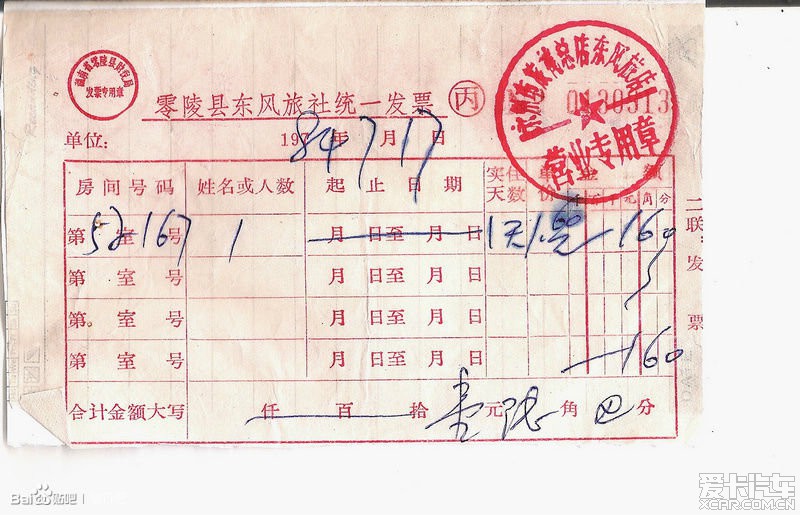 湖南省零陵县财政局
发票专用章
零陵县东风旅社统一发票 丙
0130313
营业专用章
单位: 197 84年7月17日
房间号码 姓名或人数 起止日期 实住天数 单价 金额
元 角 分
第52室167号 1 月 日至 月 日 1天 1.60 160
第 室 号 月 日至 月 日
第 室 号 月 日至 月 日
第 室 号 月 日至 月 日 160
合计金额大写 仟 百 拾 壹元陆角 分
二联:发票
Bai 贴吧
爱卡汽车
XCAR.COM.CN